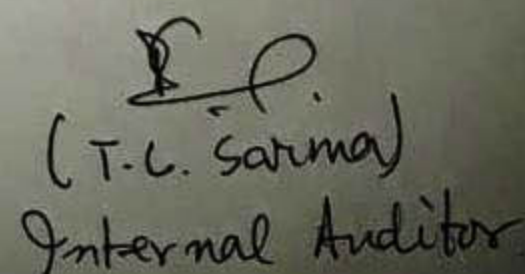 (T.C. Sarma)
Internal Auditor